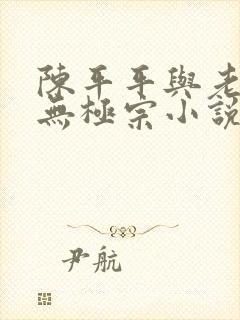 陳平平與老
無極宗小説
尹航